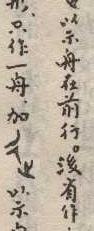 以示舟在前行。後有作
形。只作一舟。加
以示